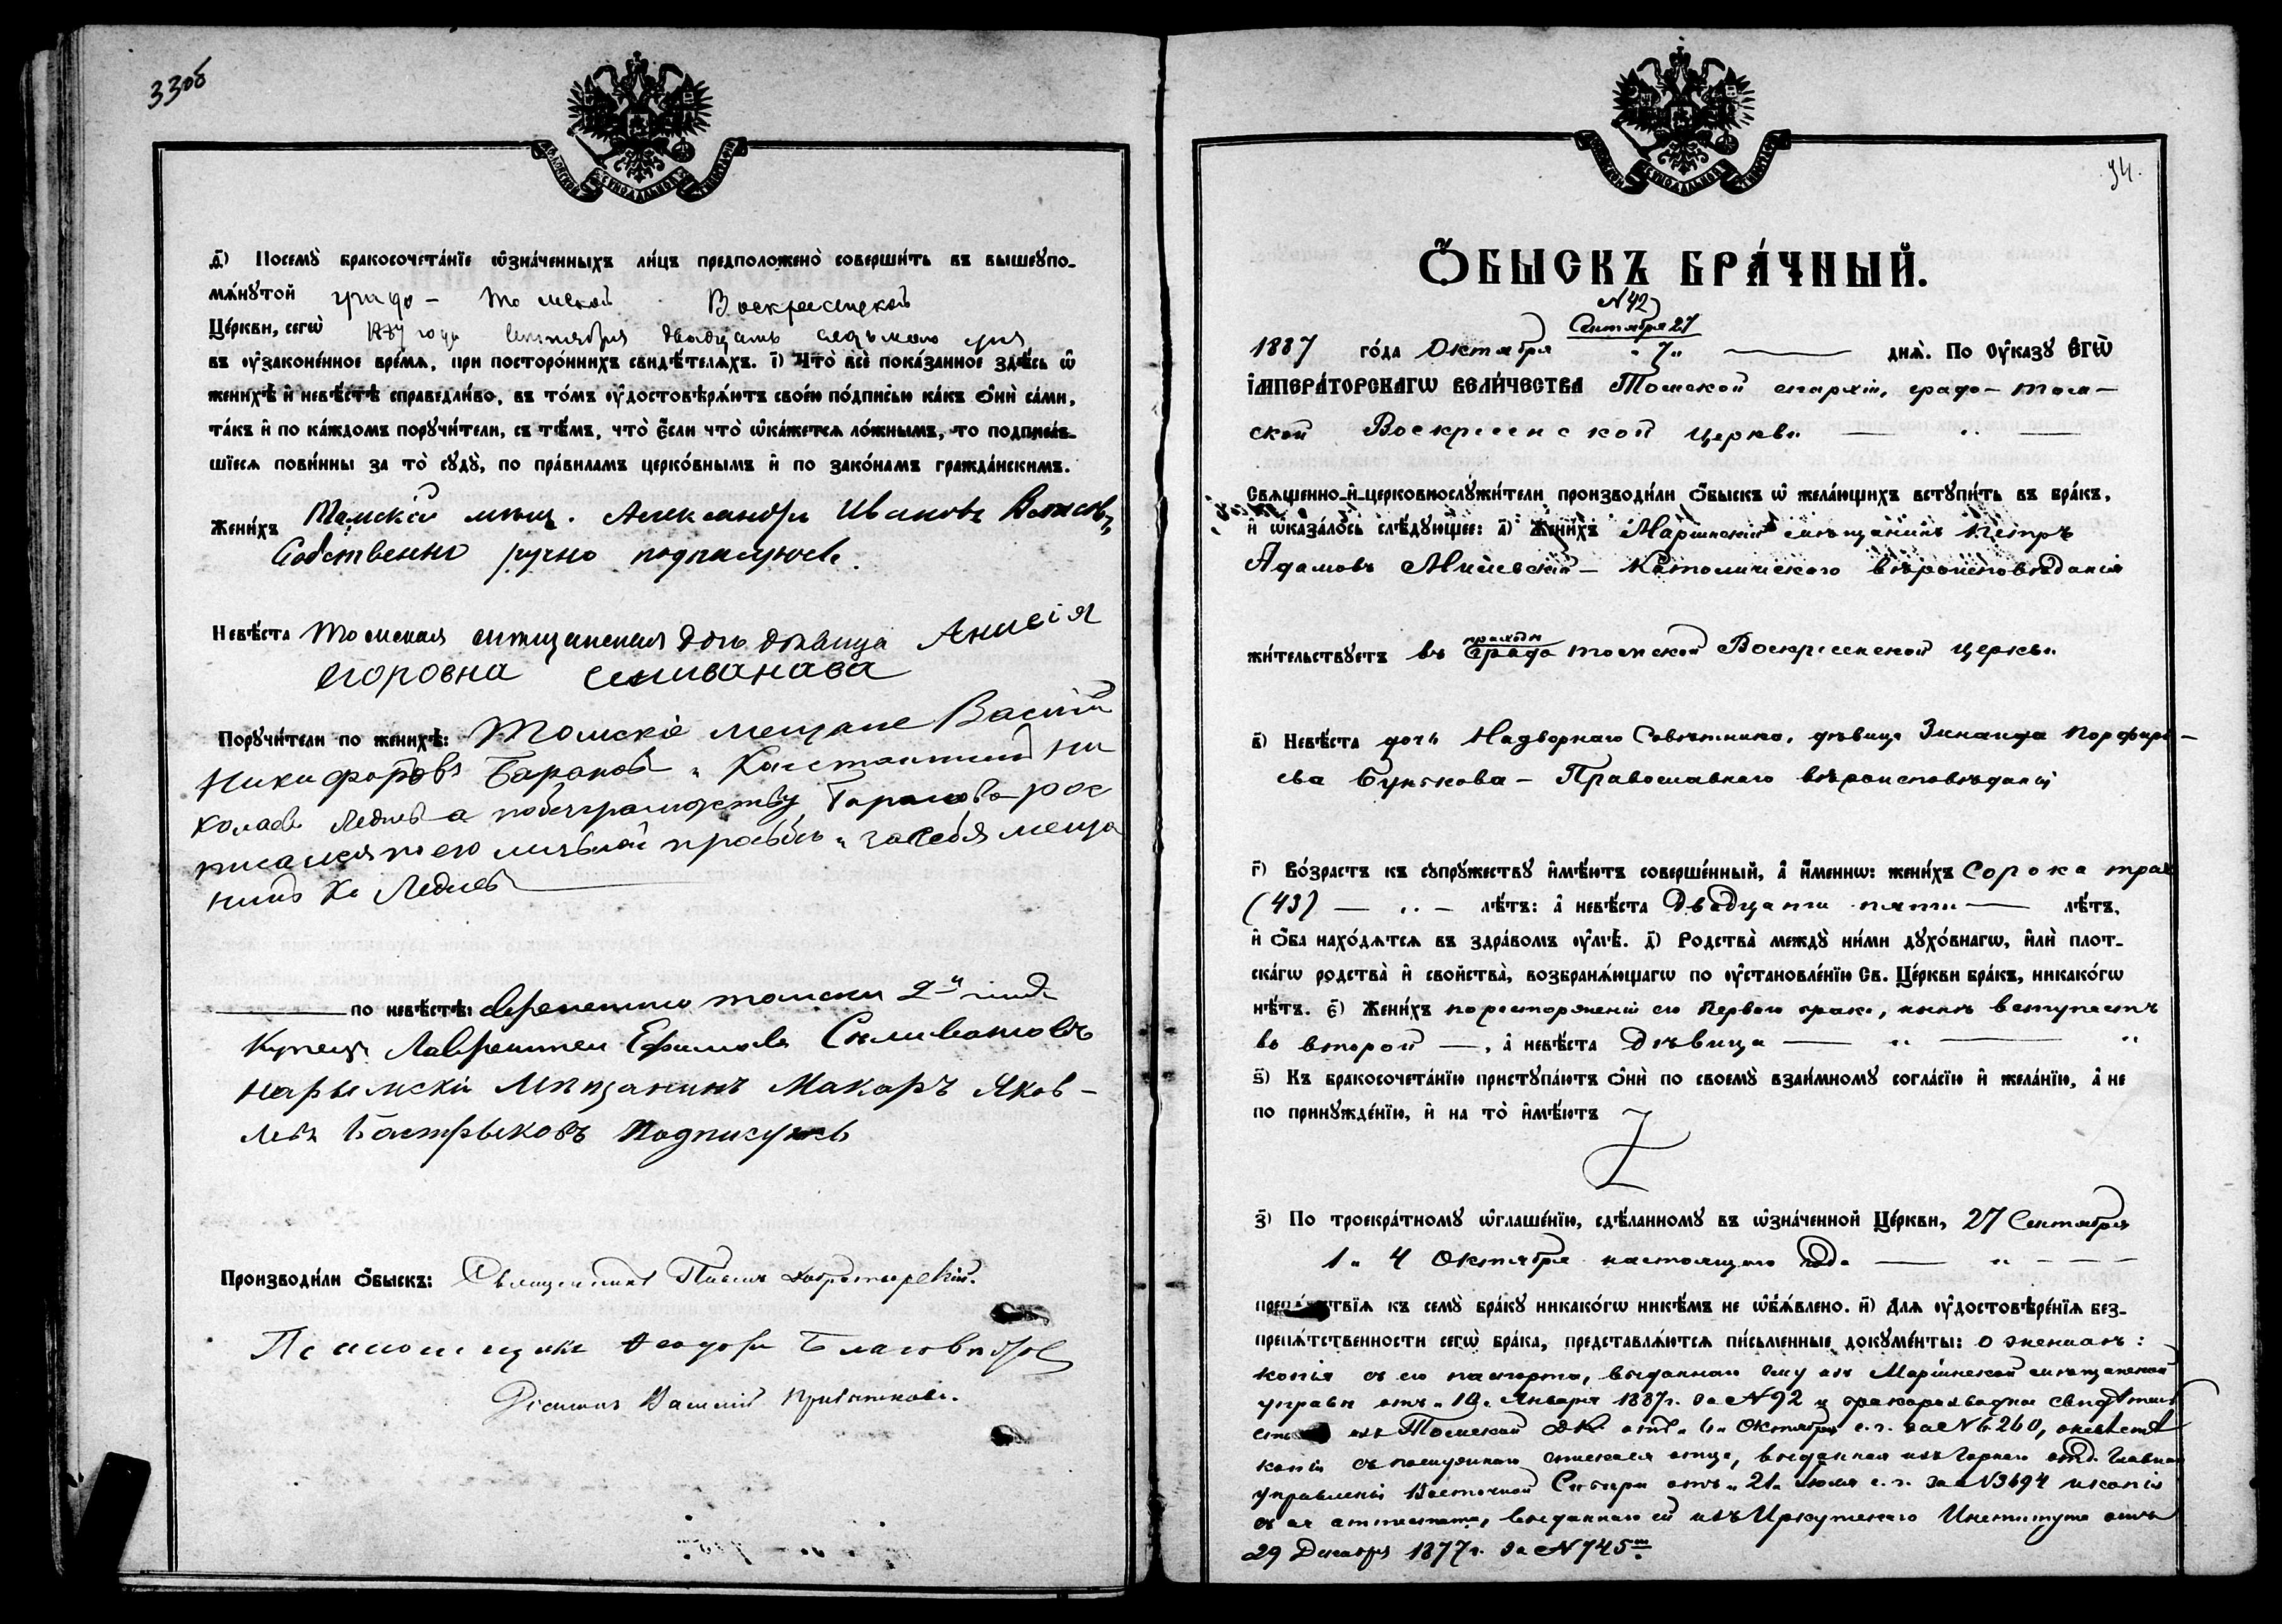 33об
д҃) Посемꙋ̀ бракосочета́нїе ѡ҆зна́ченныхъ ли́цъ предположено̀ соверши́ть въ вышеꙋпо-
мѧ́нꙋтой градо-Томской Воскресенской
Це́ркви, сегѡ̀ 1887 года Сентября двадцать седьмого дня
въ ᲂу҆зако́ненное вре́мѧ, при посторо́ннихъ свидѣ́телѧхъ. і҃) Что̀ всѐ пока́занное здѣ́сь ѡ҆
женихѣ̀ и҆ невѣ́стѣ справедли́во, въ то́мъ ᲂу҆достовѣрѧ́ютъ свое́ю по́дписью ка́къ ѻ҆нѝ са́ми,
та́къ и҆ по ка́ждомъ порꙋчи́тели, съ тѣ́мъ, что̀ є҆́сли что̀ ѡ҆ка́жетсѧ ло́жнымъ, то подписав-
шїесѧ пови́нны за то̀ сꙋдꙋ̀, по пра́виламъ церко́внымъ и҆ по зако́намъ гражда́нскимъ.
Жени́хъ Томскій мѣщ. Александръ Ивановъ
Собственно ручно подписуюсь.
Невѣ́ста Томская мещанская дочь дѣвица Анисія
Егоровна Селиванава
Порꙋчи́тели по женихѣ̀: Томскіе мещане Василій
Никифоровъ и Констонтинъ Ни
колаевъ Ледневъ а побезграмотству рос
писался по его личьной прозьбѣ и засебя меща
нинъ Ко Ледневъ
по невѣ́стѣ: Временно томски 2й гилд
Купецъ Лаврентеи Ефимовъ Силивановъ
Нарымскій Мѣщанинъ Макаръ Яков-
левъ Бастрыковъ подписуюсь
Производи́ли ѻ҆́быскъ: Священникъ Павелъ
Псаломщикъ Ѳеодоръ
Діаконъ Василий
34.
Ѻ҆БЫСКЪ БРА́ЧНЫЙ.
N 42
Сентября 27
1887 го́да Октября „7„ днѧ̀. По Оу҆ка́зꙋ Є҆ГѠ̀
І҆МПЕРА́ТОРСКАГѠ ВЕЛИ́ЧЕСТВА Томской епархіи, градо-Том-
ской Воскресенской церкви
Свѧще́нно-и҆-церковнослꙋжи́тели производи́ли ѻ҆́быскъ ѡ҆ жела́ющихъ встꙋпи́ть въ бра́къ,
и҆ ѡ҆каза́лось слѣ́дꙋющее: а҃) Жени́хъ Маріинскій мѣщанинъ Петръ
Адамовъ - Католическаго вѣроисповѣданія
жи́тельствꙋетъ въ приходѣ градо Томской Воскресенской церкви
в҃) Невѣ́ста дочь Надворнаго Совѣтника, дѣвица Зинаида Порфирь-
ева - Православнаго вѣроисповѣданія
г҃) Во́зрастъ къ сꙋпрꙋ́жествꙋ и҆мѣ́ютъ соверше́нный, а҆ и҆́меннѡ: жени́хъ Сорока трехъ
(43) лѣ́тъ: а҆ невѣ́ста Двадцати пяти лѣ́тъ,
и҆ ѻ҆́ба нахо́дѧтсѧ въ здра́вомъ ᲂу҆мѣ̀. д҃) Родства̀ междꙋ̀ ни́ми дꙋхо́внагѡ, и҆лѝ плот-
ска́гѡ родства̀ и҆ свойства̀, возбранѧ́ющагѡ по ᲂу҆становле́нїю Св. Це́ркви бра́къ, никако́гѡ
нѣ́тъ. є҃) Жени́хъ по расторженіи его перваго брака, нынѣ вступаетъ
во второй, а҆ невѣ́ста Дѣвица
ѕ҃) Къ бракосочета́нїю пристꙋпа́ютъ ѻ҆нѝ по своемꙋ̀ взаи́мномꙋ согла́сїю и҆ жела́нїю, а҆ не
по принꙋжде́нїю, и҆ на то̀ и҆мѣ́ютъ
з҃) По троекра́тномꙋ ѡ҆глаше́нїю, сдѣ́ланномꙋ въ ѡ҆зна́ченной Це́ркви, 27 Сентября
1 и 4 Октября настоящаго года
препѧ́тствїѧ къ семꙋ̀ бра́кꙋ никако́гѡ никѣ́мъ не ѡ҆бꙗ́влено. и҃) Длѧ ᲂу҆достовѣре́нїѧ без-
препѧ́тственности сегѡ̀ бра́ка, представлѧ́ютсѧ пи́сьменные докꙋме́нты: о женихѣ:
копія съ его паспорта, выданнаго ему изъ Маріинской мѣщанской
управы отъ „ Января 1887 г. за N 92 и бракоразводное свидѣтель
изъ Томской ДК отъ „6„ Октября с. г. за N 6260, о невѣстѣ
копія съ послужнаго списка ея отца, выданная изъ Горнаго отд. Главнаго
управленія Восточной Сибири отъ „21„ с. г. за N 3694 и копія
съ ея аттестата, выданнаго ей изъ Иркутскаго Института отъ
29 Декабря 1877 г. за N 745м